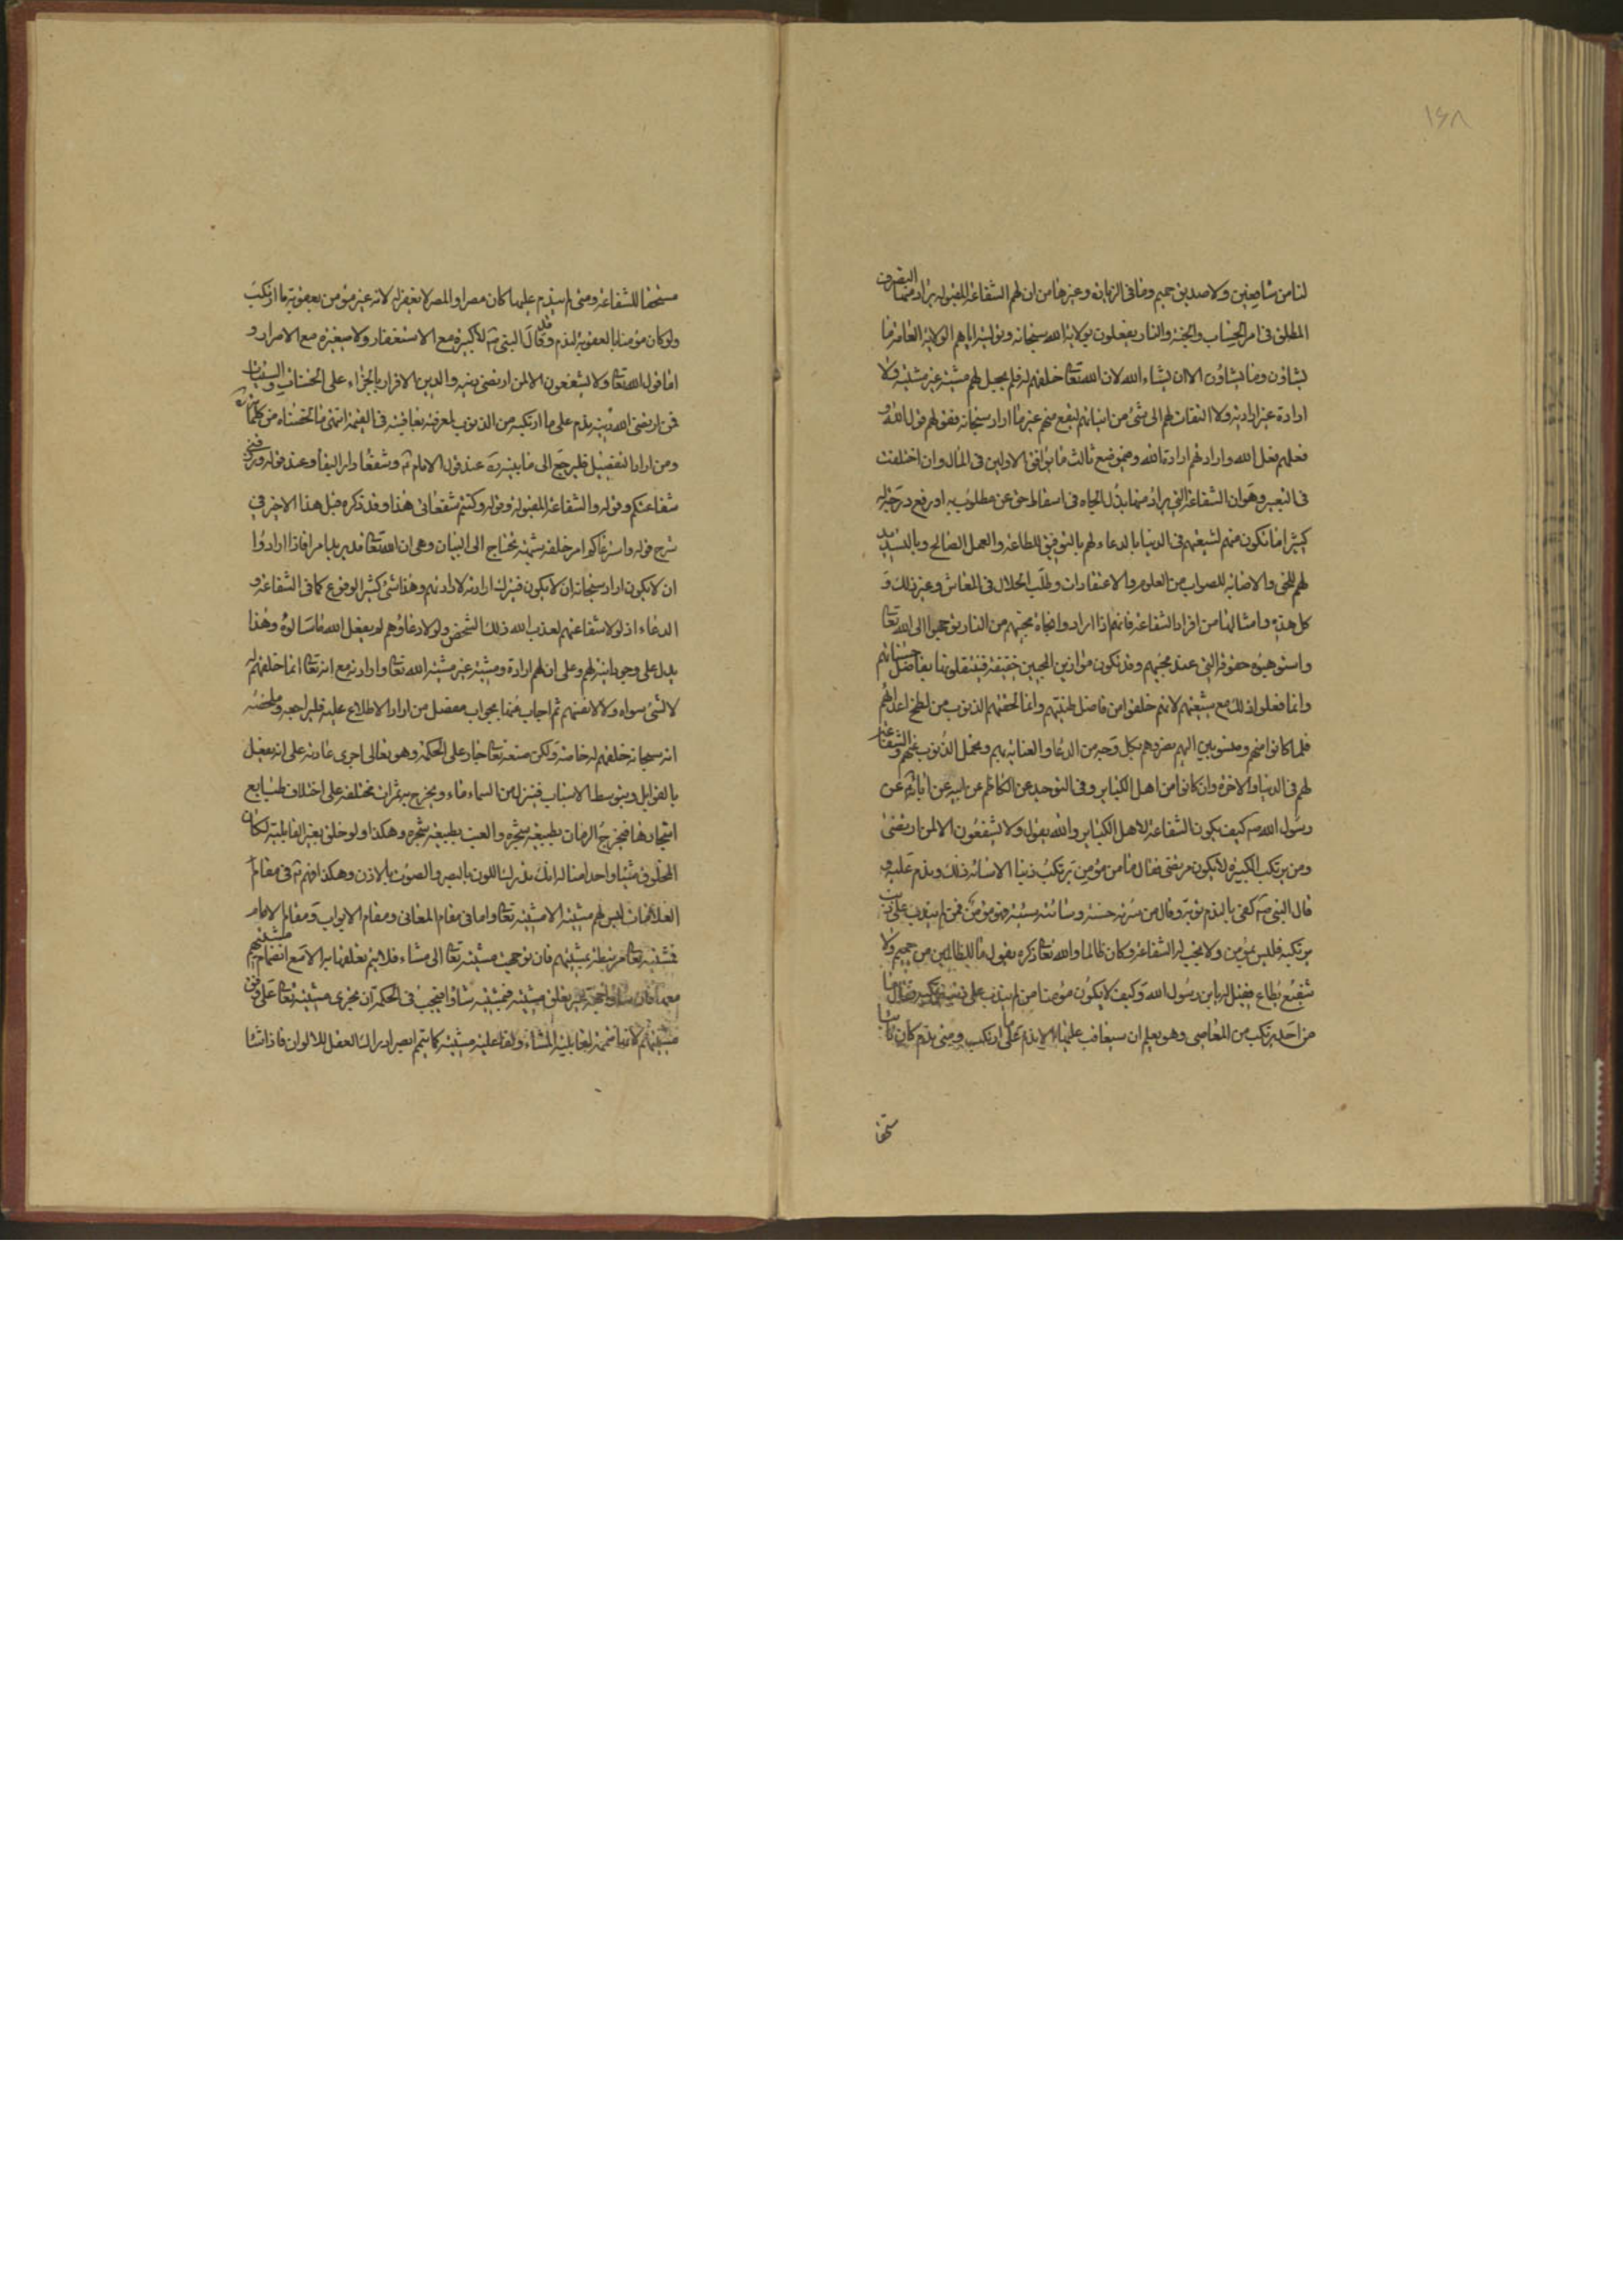 ١٤٨
لنا من شافعين ولا صديق حميم وما فى الزيارة وغيرها من ان لهم الشفاعة المقبولة يراد منها التصرف
المطلق فى امر الحساب والجنة والنار يفعلون بولاية الله سبحانه وتوليته اياهم الولاية العامة ما
يشاؤن وما يشاؤن الا ان يشاء الله لان الله تعا خلقهم له فلم يجعل لهم مشية غير مشيته ولا
ارادة غير ارادته ولا التفات لهم الى شئ من انياتهم ليقع منهم غير ما اراد سبحانه فقولهم قول الله و
فعلهم فعل الله وارادتهم ارادة الله وموضع ثالث ما يوافق الاولين فى المآل وان اختلفت
فى التعبير وهو ان الشفاعة التي يراد منها بذل الجاه فى اسقاط حق عن مطلوب به او رفع درجة له
كثيرا ما تكون منهم لشيعتهم فى الدنيا بالدعاء لهم بالتوفيق للطاعة والعمل الصالح وبالتسديد
لهم للحق والاصابة للصواب من العلوم والاعتقادات وطلب الحلال فى المعاش وغير ذلك و
كل هذه وامثالها من افراد الشفاعة فانهم اذا ارادوا نجاة محبهم من النار توجهوا الى الله تعا
واستوهبوه حقوقه التي عند محبهم وقد تكون موازين المحبين خفيفة فيثقلونها بفاضل حسناتهم
وانما فعلوا ذلك مع شيعتهم لانهم خلقوا من فاضل طينتهم وانما لحقتهم الذنوب من لطخ اعدائهم
فلما كانوا منهم ومنسوبين اليهم نصروهم بكل وجه من الدعا والعناية بهم وتحمل الذنوب عنهم والشفاعة
لهم فى الدنيا والاخرة وان كانوا من اهل الكباير وفى التوحيد عن الكاظم عن ابيه عن آبائه عن
رسول الله ص كيف يكون الشفاعة لاهل الكباير والله يقول ولا يشفعون الا لمن ارتضى
ومن يرتكب الكبيرة لا يكون مرتضى فقال ما من مؤمن يرتكب ذنبا الا ساءه ذلك وندم عليه و
قال النبى ص كفى بالندم توبة وقال من سرته حسنة وسائته سيئة فهو مؤمن فمن لم يندم على ذنب
يرتكبه فليس بمؤمن ولا يجب له الشفاعة وكان ظالما والله تعا ذكره يقول ما للظالمين من حميم ولا
شفيع يطاع فقيل له يا بن رسول الله وكيف لا يكون مؤمنا من لم يندم على ذنب يرتكبه فقال ما
من احد يرتكب من المعاصى وهو يعلم ان سيعاقب عليها الا ندم على ما ارتكب ومتى ندم كان تائبا
مستحقا
مستحقا للشفاعة ومتى لم يندم عليها كان مصرا والمصر لا يغفر له لانه غير مؤمن بعقوبة ما ارتكب
ولو كان مؤمنا بالعقوبة لندم وقد قال النبى ص لا كبيرة مع الاستغفار ولا صغيرة مع الاصرار و
اما قول الله تعا ولا يشفعون الا لمن ارتضى دينه والدين الاقرار بالجزاء على الحسنات والسيئات
فمن ارتضى الله دينه ندم على ما ارتكبه من الذنوب لمعرفته بعاقبته فى القيمة انتهى ما لخصناه من كلماته
ومن اراد التفصيل فليرجع الى ما بينه ره عند قول الامام ع وشفعا دار البقا وعند قوله ورزقنى
شفاعتكم وقوله والشفاعة المقبولة وقوله وكنتم شفعائى هذا وقد ذكره قبل هذا الاخير فى
شرح قوله واسترعاكم امر خلقه شبهة تحتاج الى البيان وهى ان الله تعا قد يريد امرا فاذا ارادوا
ان لا يكون اراد سبحانه ان لا يكون فيترك ارادته لارادتهم وهذا شئ كثير الوقوع كما فى الشفاعة و
الدعاء اذ لولا شفاعتهم لعذب الله ذلك الشخص ولولا دعاؤهم لم يفعل الله ما سالوه وهذا
يدل على وجود انية لهم وعلى ان لهم ارادة ومشية غير مشية الله تعا وارادته مع انه تعا انما خلقهم له
لا لشئ سواه ولا لانفسهم ثم اجاب عنها بجواب مفصل من اراد الاطلاع عليه فليراجعه وملخصه
انه سبحانه خلقهم له خاصة ولكن صنعه تعا جار على الحكمة وهو تعالى اجرى عادته على انه يفعل
بالقوابل ويتوسط الاسباب فينزل من السماء ماء ويخرج به ثمرات مختلفة على اختلاف طبايع
اشجارها فيخرج الرمان بطبيعة شجره والعنب بطبيعة شجره وهكذا ولو خلق بغير القابلية لكان
المخلوق شيئا واحدا مثاله انك تدرك اللون بالبصر والصوت بالاذن وهكذا فهم ع فى مقام
العلامات ليس لهم مشية الا مشيته تعا واما فى مقام المعانى ومقام الابواب ومقام الامام
فمشيته تعا مرتبطة بمشيتهم فان توجهت مشيته تعا الى مشاء فلا يتم تعلقها به الا مع انضمام مشيتهم
معها فان شاؤا تعلق مشيته فبمشيته شاؤا فيجب فى الحكمة ان يجرى مشيته تعا على وفق
مشيتهم لانها متممة لقابلية المشاء ولفاعلية مشيته كما يتمم البصر ادراك العقل للالوان فاذا شاؤا